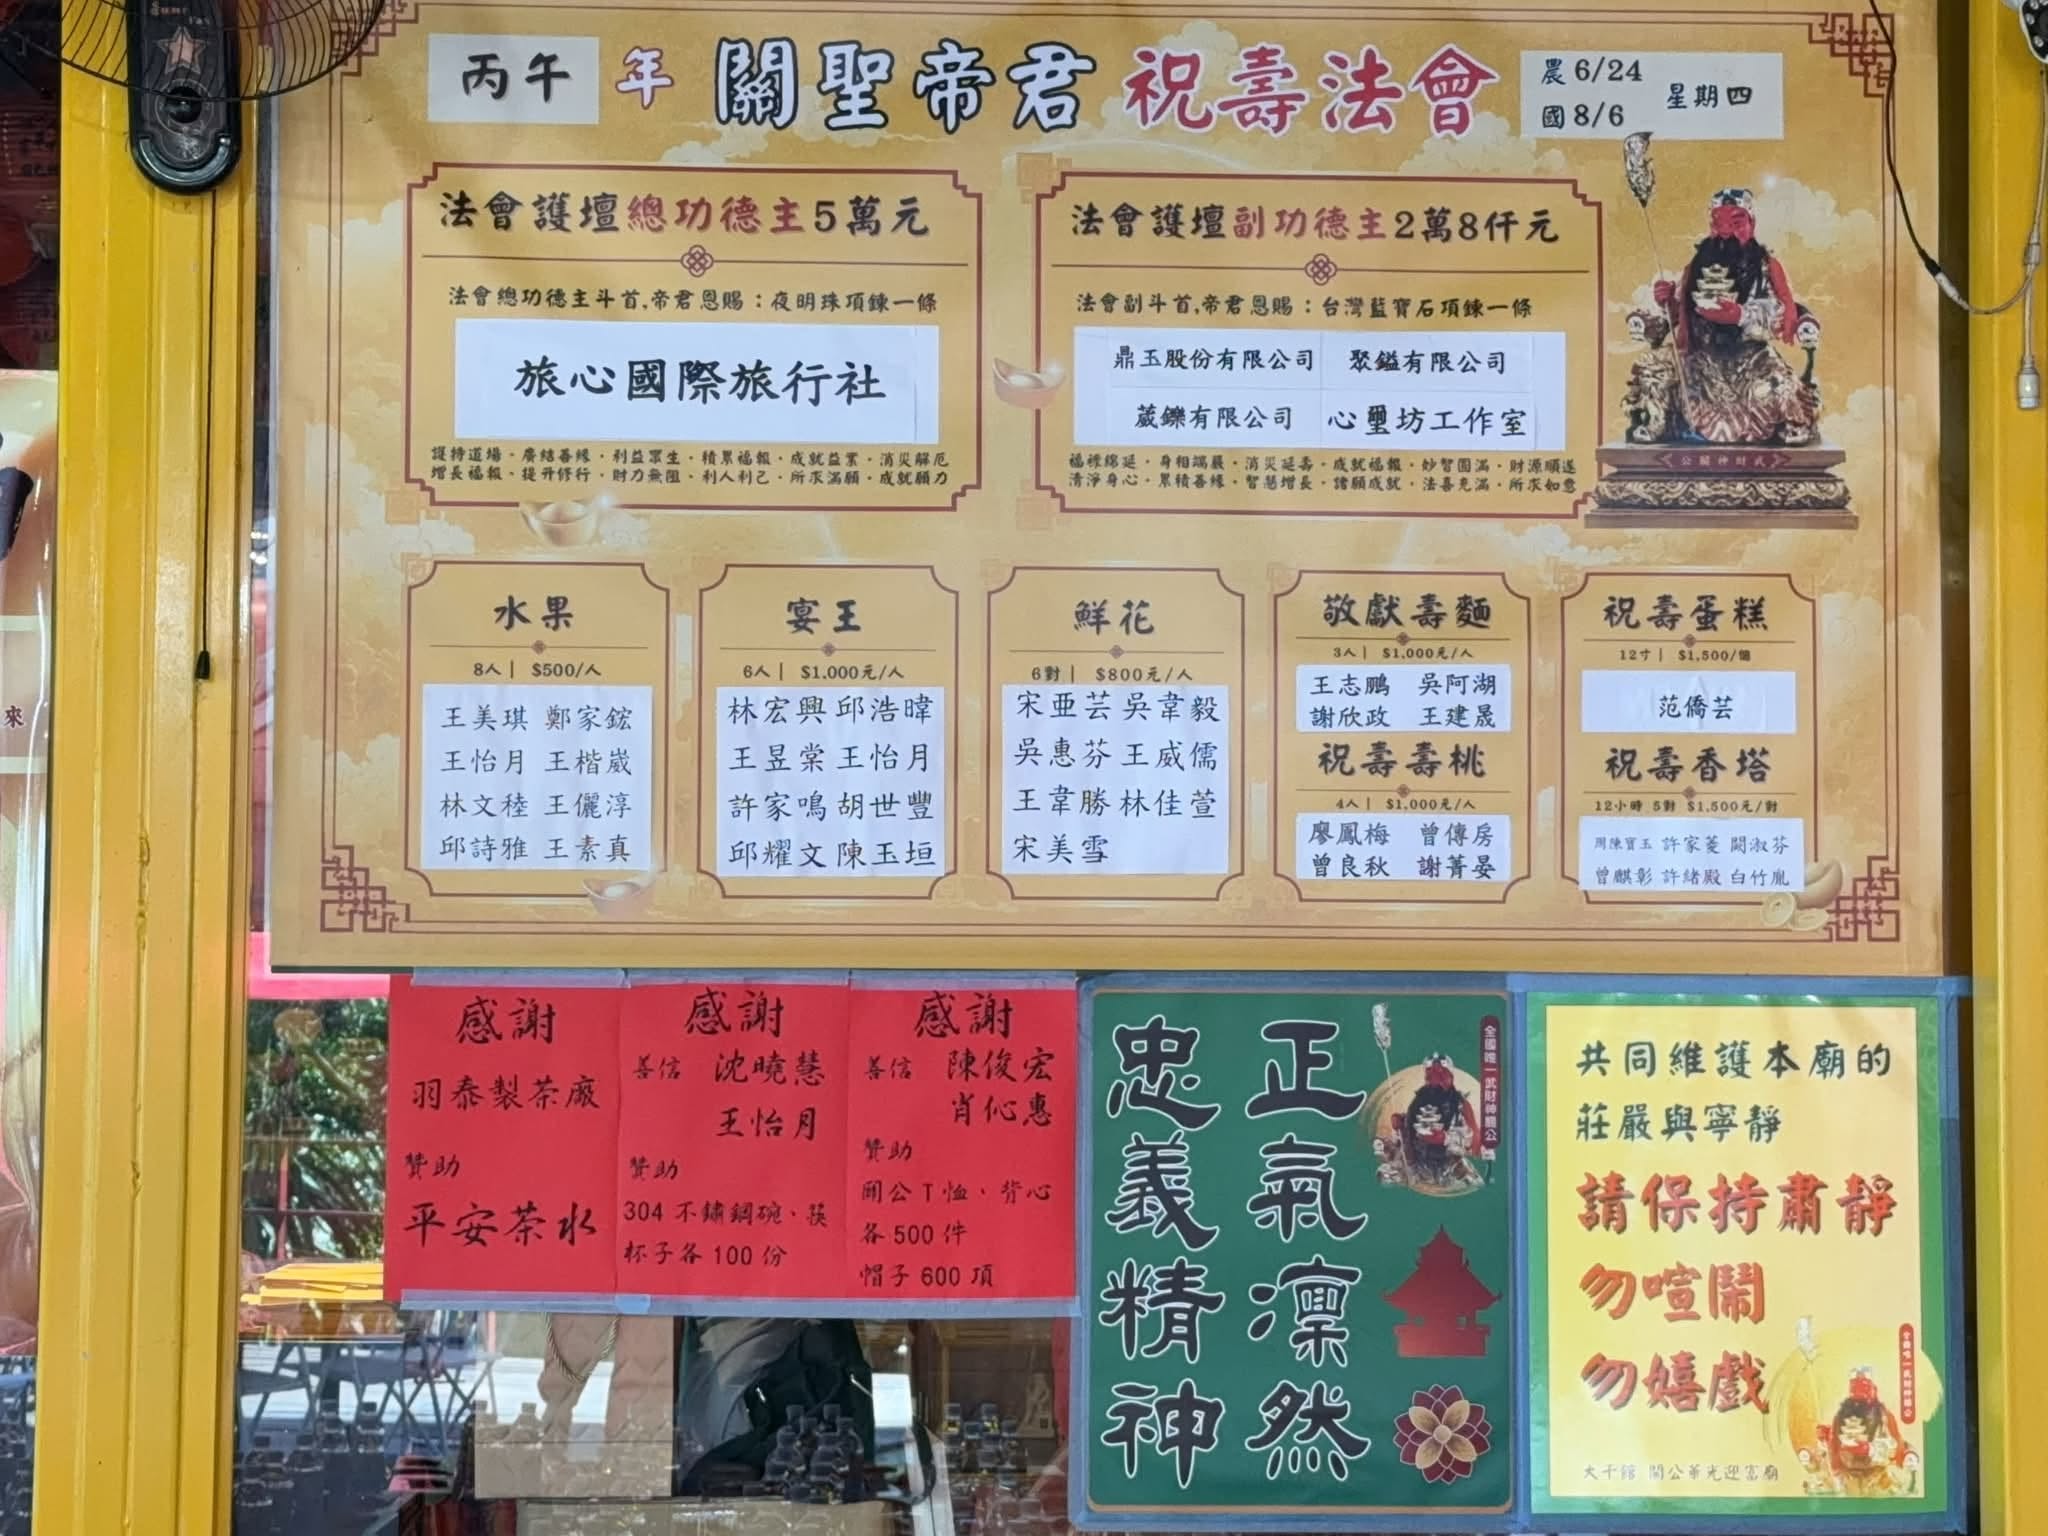 丙午 年 關聖帝君 祝壽法會
農 6/24
國 8/6
星期四
法會護壇總功德主5萬元
法會總功德主斗首,帝君恩賜：夜明珠項鍊一條
旅心國際旅行社
護持道場·廣結善緣·利益眾生·積累福報·成就益業·消災解厄
增長福報·提升修行·財力無阻·利人利己·所求滿願·成就願力
法會護壇副功德主2萬8仟元
法會副斗首,帝君恩賜：台灣藍寶石項鍊一條
鼎玉股份有限公司 聚鎰有限公司
葳鑠有限公司 心璽坊工作室
福祿綿延·身相端嚴·消災延壽·成就福報·妙智圓滿·財源順遂
清淨身心·累積善緣·智慧增長·諸願成就·法喜充滿·所求如意
公關神財武
水果
8人| $500/人
王美琪 鄭家鋐
王怡月 王楷崴
林文稑 王儷淳
邱詩雅 王素真
宴王
6人| $1,000元/人
林宏興 邱浩暐
王昱棠 王怡月
許家鳴 胡世豐
邱耀文 陳玉垣
鮮花
6對| $800元/人
宋亞芸 吳韋毅
吳惠芬 王威儒
王韋勝 林佳萱
宋美雪
敬獻壽麵
3人| $1,000元/人
王志鵬 吳阿湖
謝欣政 王建晟
祝壽壽桃
4人| $1,000元/人
廖鳳梅 曾傳房
曾良秋 謝菁晏
祝壽蛋糕
12寸| $1,500/個
范僑芸
祝壽香塔
12小時 5對 $1,500元/對
周陳寶玉 許家菱 闕淑芬
曾麒彰 許緒殿 白竹胤
來
感謝
羽泰製茶廠
贊助
平安茶水
感謝
善信 沈曉慧
王怡月
贊助
304 不鏽鋼碗、筷
杯子各 100 份
感謝
善信 陳俊宏
肖伈惠
贊助
關公T恤、背心
各500件
帽子 600 項
正氣凜然
忠義精神
全國唯一武財神關公
共同維護本廟的
莊嚴與寧靜
請保持肅靜
勿喧鬧
勿嬉戲
全國唯一武財神關公